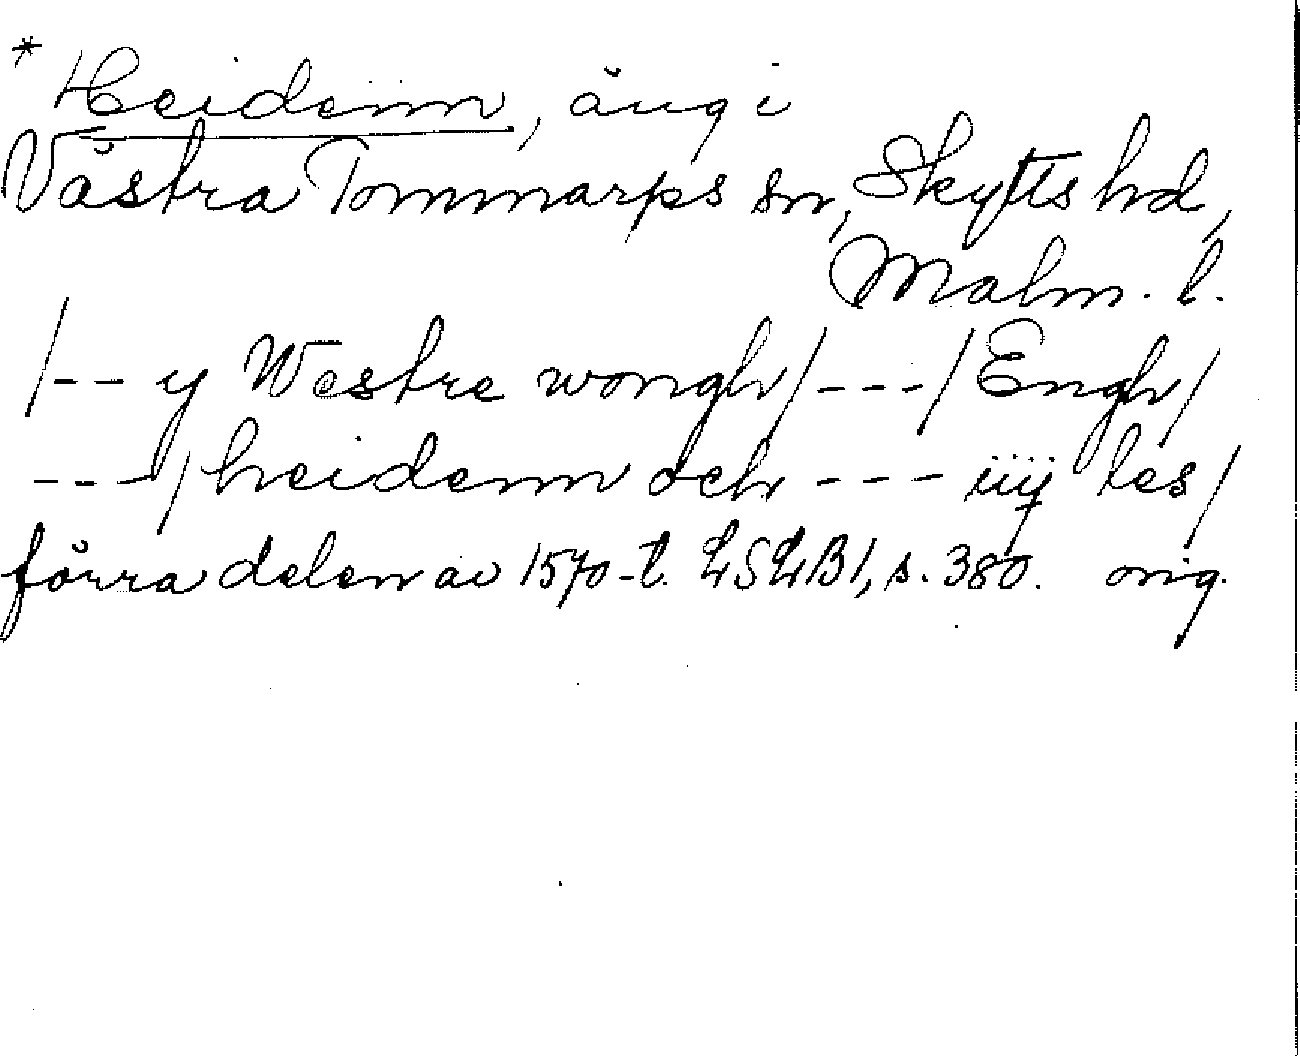 * Heidenn, äng i
Västra Tommarps sn, Skytts hd,
Malm. l.
/-- y Westre wongh/---/Engh/
---/heidenn och --- iiij les/
förra delen av 1570-t. LSLB1, s. 380. orig.